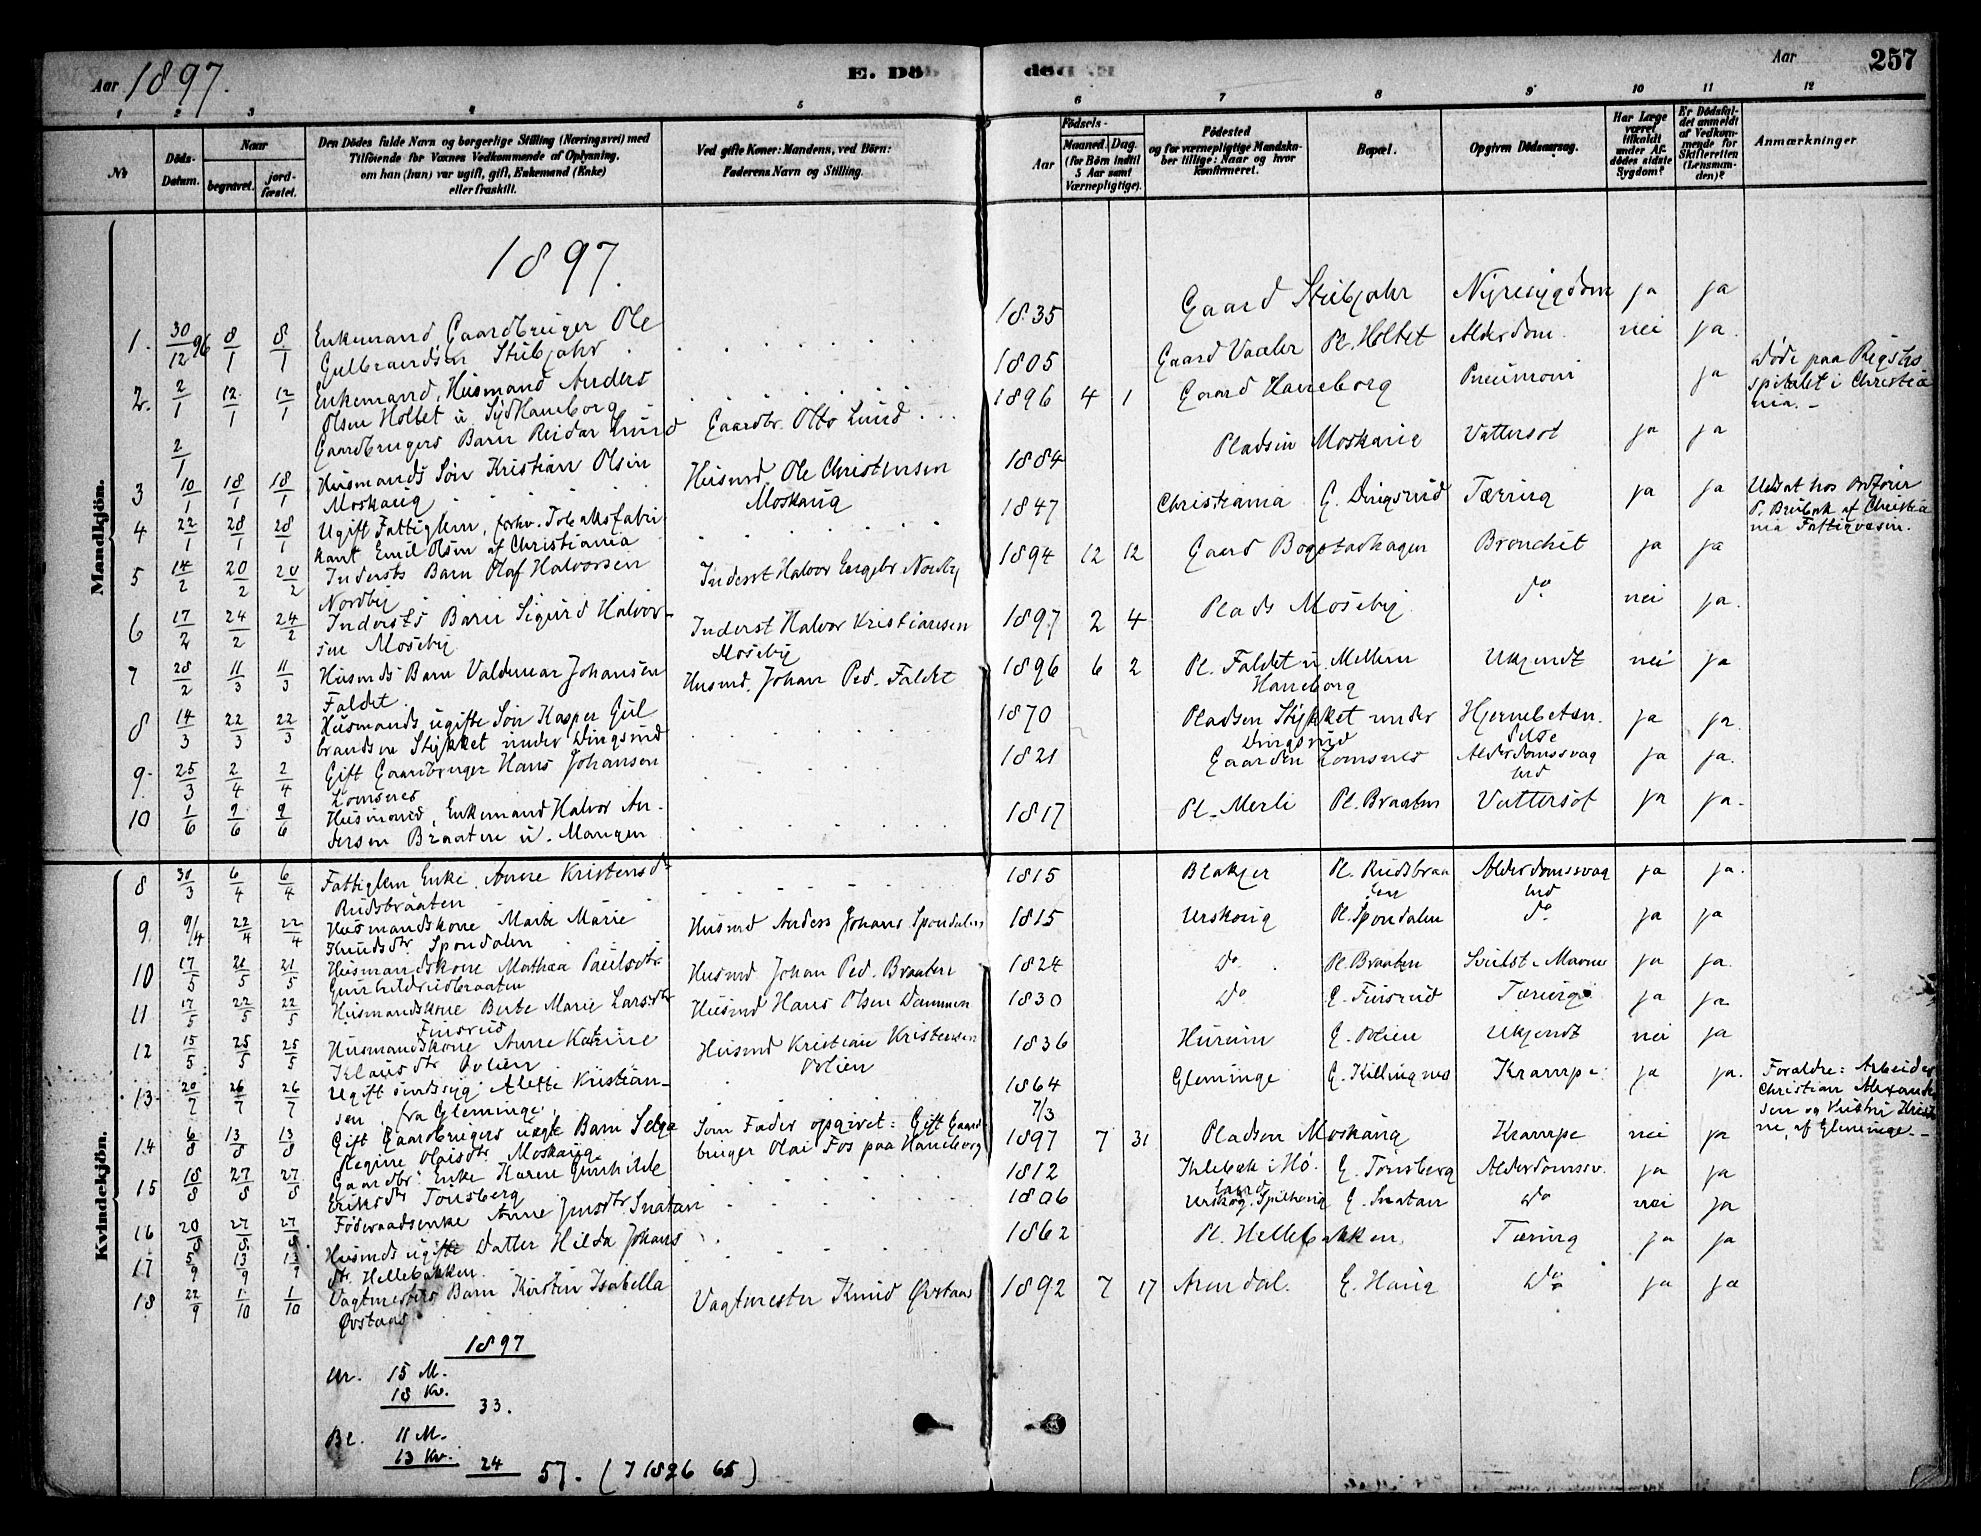 Aar 1897.
E. Dö
död
Aar
257
1 2 3 4 5 6 7 8 9 10 11 12
No
Döds-Datum.
Naar
begravet.
jord-fæstet.
Den Dödes fulde Navn og borgerlige Stilling (Næringsvei) med
Tilföiende for Voxnes Vedkommende af Oplysning,
om han (hun) var ugift, gift, Enkemand (Enke)
eller fraskilt.
Ved gifte Koner: Mandens, ved Börn:
Faderens Navn og Stilling.
Födsels-
Aar
Maaned. Dag.
(for Börn indtil
5 Aar samt
Værnepligtige).
Födested
og for værnepligtige Mandska-
ber tillige: Naar og hvor
konfirmeret.
Bopæl.
Opgiven Dödsaarsag.
Har Læge
været
tilkaldt
under Af-
dödes sidste
Sygdom?
Er Dödsfal-
det anmeldt
af Vedkom-
mende for
Skifteretten
(Lensman-
den)?
Anmærkninger
Mandkjön.
1897.
1. 30/12 96 8/1 8/1 Enkemand, Gaardbruger Ole
Gulbrandsen Stubjahr 1835 Gaard Stubjahr Nyresygdom ja ja
2. 2/1 12/1 12/1 Enkemand, Husmand Anders
Olsen Holtet u. Syd Haneborg 1805 Gaard Vaaler Pl. Holtet Alderdom nei ja.
2/1 Gaardbrugers Barn Reidar Lund Gaardbr. Otto Lund 1896 4 1 Gaard Haneborg Pneumoni ja Döde paa Rigsho
spitalet i Christia
nia. –
3 10/1 18/1 18/1 Husmands Sön Kristian Olsen
Moskaug Husmd. Ole Christensen
Moskaug 1884 Pladsen Moskaug Vattersot ja ja
4 22/1 28/1 28/1 Ugift Fattiglem, forhv. Tobaksfabri-
kant Emil Olsen af Christiania 1847 Christiania G. Dingsrud Tæring ja ja Udsat hos Ordförer
P. Breibæk af Christia
nia Fattigvæsen.
5 14/2 20/2 20/2 Indersts Barn Olaf Halvorsen
Nordby Inderst Halvor Engebr. Nordby 1894 12 12 Gaard Bogstadhagen Bronchit ja ja
6 17/2 24/2 24/2 Indersts Barn Sigurd Halvor-
sen Moseby Inderst Halvor Kristiansen
Moseby 1897 2 4 Plads Moseby do nei ja.
7 28/2 11/3 11/3 Husmds Barn Valdemar Johansen
Faldet Husmd. Johan Ped. Faldet 1896 6 2 Pl. Faldet u. Mellem
Haneborg Ukjendt nei ja
8 14/3 22/3 22/3 Husmands ugifte Sön Kasper Gul
brandsen Stykket under Dingsrud 1870 Pladsen Stykket under
Dingsrud Hjernebetæn.
delse ja ja.
9. 25/3 2/4 2/4 Gift Gaardbruger Hans Johansen
Lomsnes 1821 Gaarden Lomsnes Alderdomssvag
hed ja ja.
10 1/6 9/6 9/6 Husmand, Enkemand Halvor An-
dersen Braaten u. Mangen 1817 Pl. Merli Pl. Braaten Vattersot ja ja.
Kvindekjön.
8 30/3 6/4 6/4 Fattiglem Enke, Anne Kristensdr
Rudsbraaten 1815 Blakjer Pl. Rudsbraa
ten Alderdomssvag
hed ja ja.
9. 9/4 22/4 22/4 Husmandskone Marte Marie
Knudsdtr Spondalen Husmd Anders Johans. Spondalen 1815 Urskoug Pl. Spondalen do ja ja
10 17/5 21/5 21/5 Husmandskone Mathea Paulsdtr
Gunhildrudbraaten Husmd Johan Ped. Braaten 1824 Do Pl. Braaten Svulst i Maven ja ja.
11 17/5 22/5 22/5 Husmandskone Berte Marie Larsdtr
Finsrud Husmd Hans Olsen Dammen 1830 Do E. Finsrud Tæring ja ja
12 15/5 25/5 25/5 Husmandskone Anne Katrine
Klausdtr Volien Husmd Kristian Kristensen
Volien 1836 Hurum E. Volien Ukjendt nei ja
13. 20/7 26/7 26/7 Ugift sindssyg Alette Kristian-
sen fra Glemminge 1864
7/3 Glemminge E. Killingmo Krampe ja ja. Foraldre: Arbeider
Christian Alexand
sen og Hustru
ne, af Glemminge. –
14. 6/8 13/8 13/8 Gift Gaardbrugers uægte Barn Helga
Regine Olaisdtr Moskaug Som Fader opgivet: Gift Gaard
bruger Olai Fos paa Haneborg 1897 7 31 Pladsen Moskaug Krampe nei ja
15 18/8 27/8 27/8 Gaardbr. Enke Karen Gunhilde
Eriksdtr Tonsberg 1812 Kilebæk i Hö-
land E. Tonsberg Alderdomssv. ja ja
16 20/8 27/8 27/8 Föderaadsenke Anne Jensdtr Snatan 1806 Urskog. E. Snatan Do nei ja
17 5/9 13/9 13/9 Husmds ugifte Datter Hilda Johans
dtr. Hellebakken 1862 Pl. Hellebakken Tæring ja ja
18 22/9 1/10 1/10 Vagtmesters Barn Kirstin Isabella
Övstaas Vagtmester Knud Övstaas 1892 7 17 Arendal. E. Haug Do ja ja
1897
Ur. 15 M.
18 Kv.
33.
Bl. 11 M.
13 Kv. 24 57. (I 1896 65)